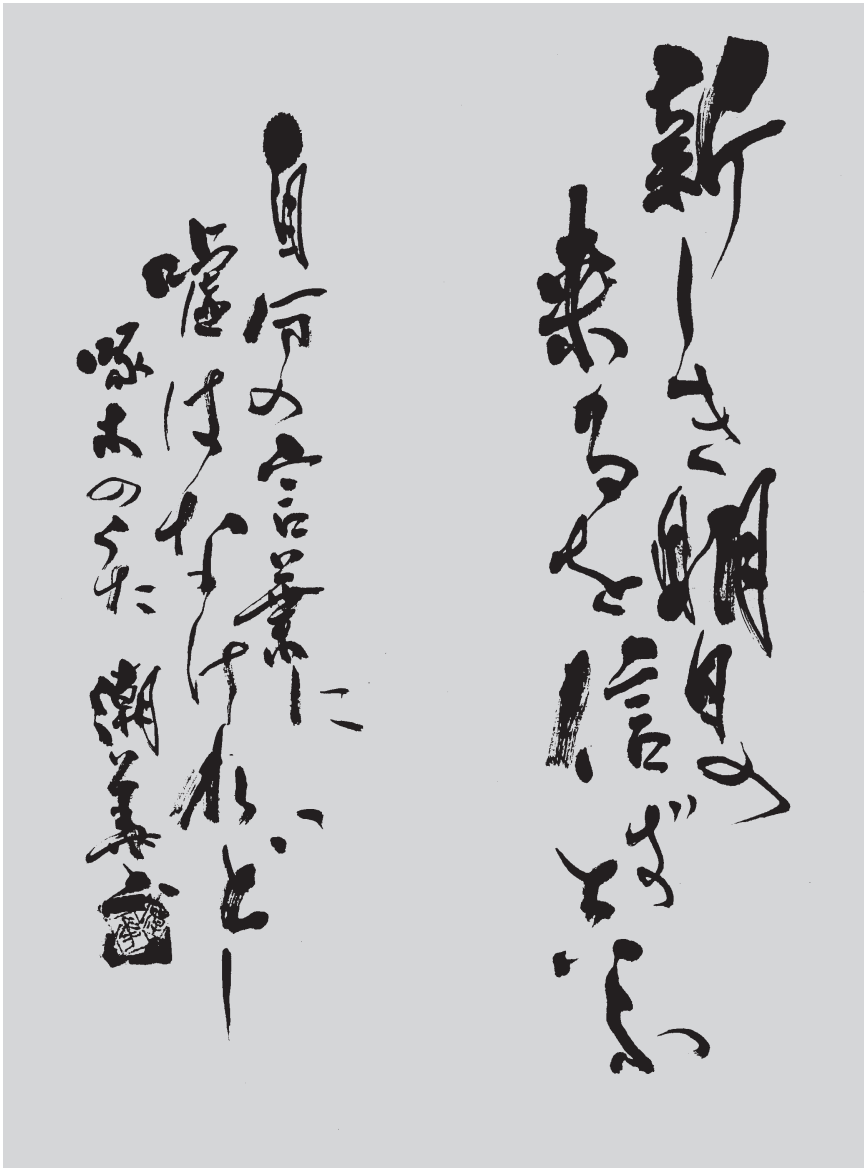 新しき明日の
来るを信ずといふ
自分の言葉に
嘘はなけれど―
啄木のうた